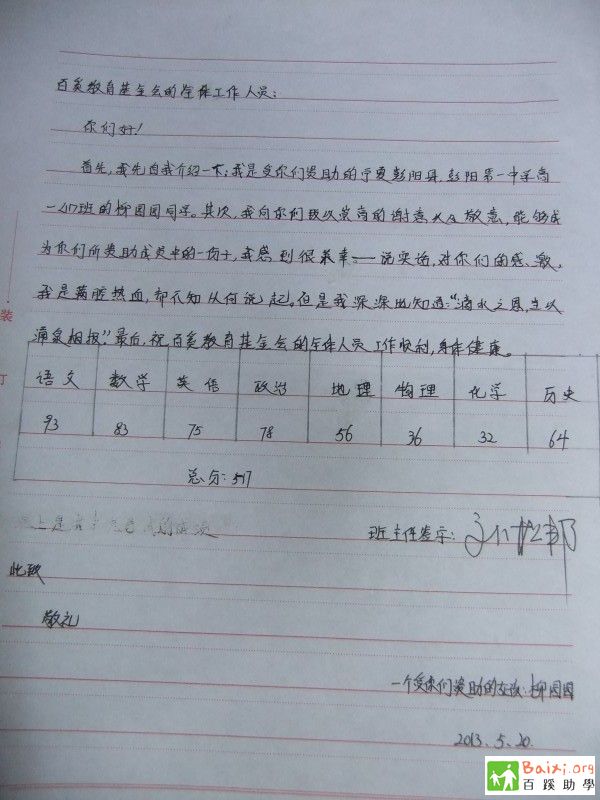 百奚教育基金会的全体工作人员：
你们好！
首先，我先自我介绍一下：我是受你们资助的宁夏彭阳县，彭阳第一中学高
一（17）班的柳园园同学。其次，我向你们致以崇高的谢意以及敬意，能够成
为你们所资助成员中的一份子，我感到很荣幸——说实话，对你们的感激，
我是满腔热血，却不知从何说起。但是我深深地知道："滴水之恩，当以
涌泉相报"。最后，祝百奚教育基金会的全体人员工作顺利，身体健康。
语文 数学 英语 政治 地理 物理 化学 历史
93 83 75 78 56 36 32 64
总分：517
以上是
班主任签字：
此致
敬礼
一个受你们资助的女孩：柳园园
2013.5.20.
Baixi.org
百蹊助學
装
订